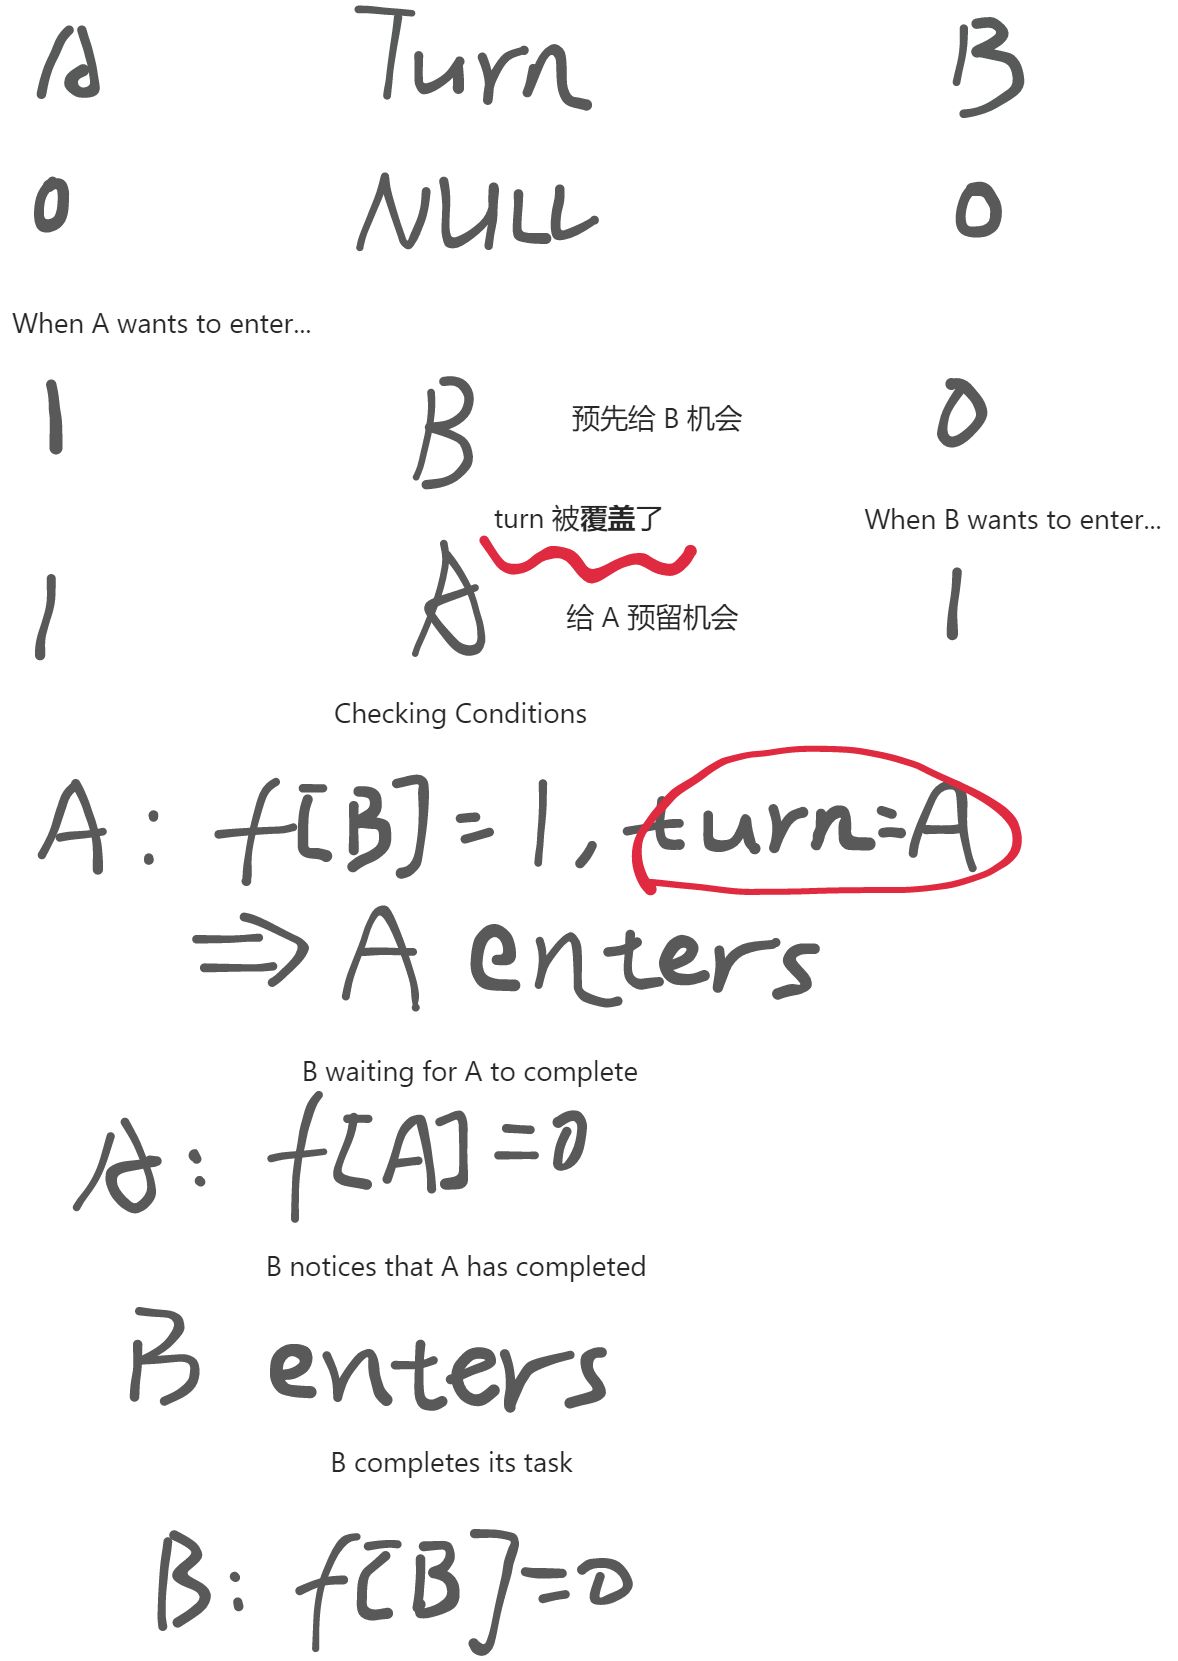 A Turn B
0 NULL 0
When A wants to enter...
1 B 预先给 B 机会 0
turn 被覆盖了 When B wants to enter...
1 A 给 A 预留机会 1
Checking Conditions
A: f[B]=1, turn=A
⇒ A enters
B waiting for A to complete
A: f[A]=0
B notices that A has completed
B enters
B completes its task
B: f[B]=0